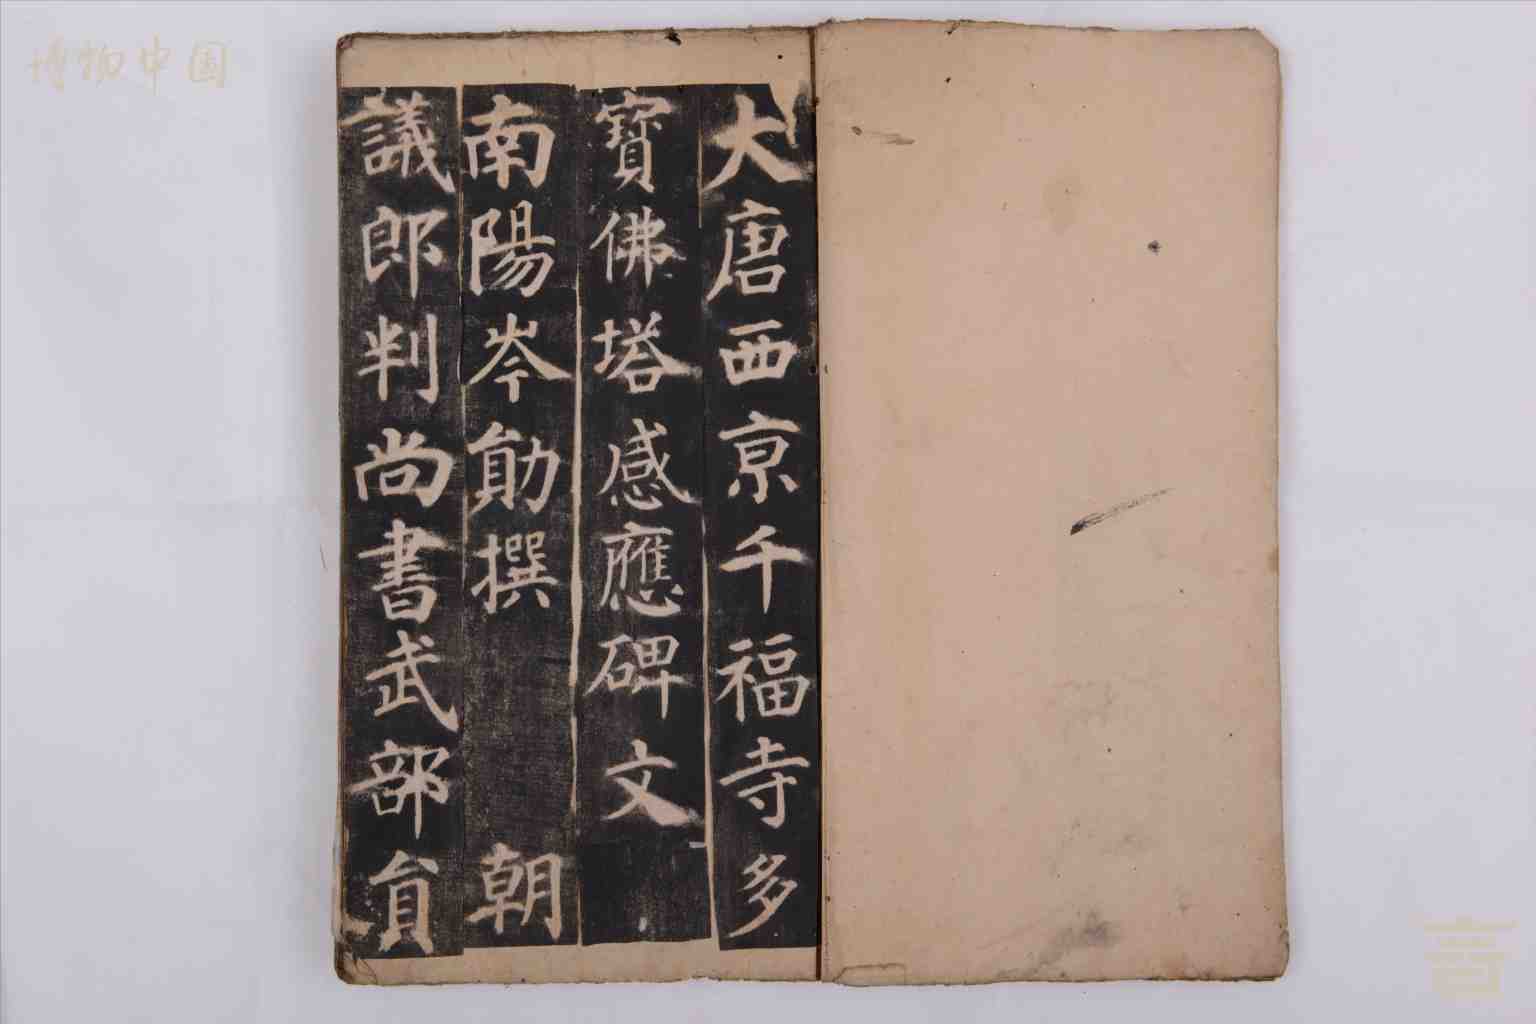 大唐西京千福寺多
寶佛塔感應碑文
南陽岑勛撰 朝
議郎判尚書武部員
博物中国